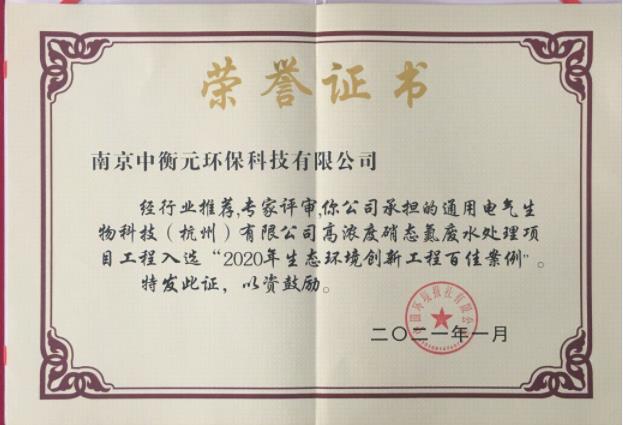 荣誉证书
南京中衡元环保科技有限公司
经行业推荐,专家评审,你公司承担的通用电气生
物科技（杭州）有限公司高浓度硝态氮废水处理项
目工程入选“2020年生态环境创新工程百佳案例”。
特发此证，以资鼓励。
中国环境报社有限公司
二〇二一年一月